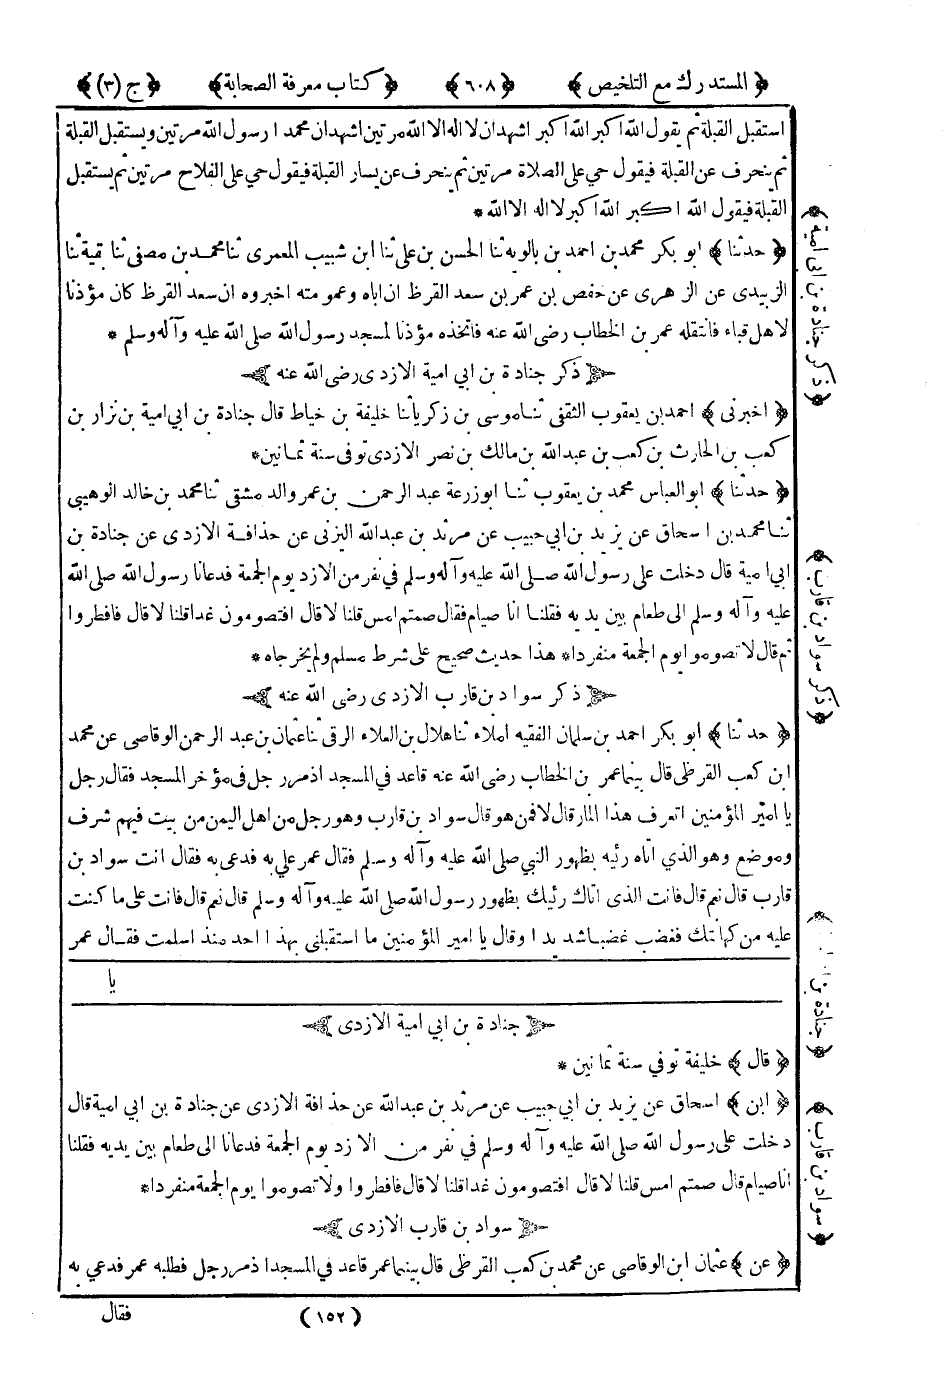 ﴿ المستدرك مع التلخيص ﴾ ﴿ ٦٠٨ ﴾ ﴿ كتاب معرفة الصحابة ﴾ ﴿ ج (٣) ﴾
استقبل القبلة ثم يقول الله اكبر الله اكبر اشهد ان لا اله الا الله مرتين اشهد ان محمدا رسول الله مرتين ويستقبل القبلة
ثم ينحرف عن القبلة فيقول حي على الصلاة مرتين ثم ينحرف عن يسار القبلة فيقول حي على الفلاح مرتين ثم يستقبل
القبلة فيقول الله اكبر الله اكبر لا اله الا الله *
﴿ حدثنا ﴾ ابو بكر محمد بن احمد بن بالويه ثنا الحسن بن علي ثنا ابن شبيب المعمرى ثنا محمد بن مصفى ثنا بقية ثنا
الزبيدى عن الزهرى عن حفص بن عمر بن سعد القرظ ان اباه وعمومته اخبروه ان سعد القرظ كان مؤذنا
لاهل قباء فانتقله عمر بن الخطاب رضى الله عنه فاتخذه مؤذنا لمسجد رسول الله صلى الله عليه وآله وسلم *
ذكر جنادة بن ابي امية الازدى رضى الله عنه
﴿ اخبرنى ﴾ احمد بن يعقوب الثقفى ثنا موسى بن زكريا ثنا خليفة بن خياط قال جنادة بن ابى امية بن نزار بن
كعب بن الحارث بن كعب بن عبد الله بن مالك بن نصر الازدى توفى سنة ثمانين *
﴿ حدثنا ﴾ ابو العباس محمد بن يعقوب ثنا ابو زرعة عبد الرحمن بن عمر والد مشقى ثنا محمد بن خالد الوهيبى
ثنا محمد بن اسحاق عن يزيد بن ابي حبيب عن مرثد بن عبد الله اليزنى عن حذافة الازدى عن جنادة بن
ابي امية قال دخلت على رسول الله صلى الله عليه وآله وسلم في نفر من الازد يوم الجمعة فدعانا رسول الله صلى الله
عليه وآله وسلم الى طعام بين يديه فقلنا انا صيام فقال صمتم امس قلنا لا قال افتصومون غدا قلنا لا قال فافطروا
ثم قال لا تصوموا يوم الجمعة منفردا * هذا حديث صحيح على شرط مسلم ولم يخرجاه *
ذكر سواد بن قارب الازدى رضى الله عنه
﴿ حدثنا ﴾ ابو بكر احمد بن سلمان الفقيه املاء ثنا هلال بن العلاء الرقى ثنا عثمان بن عبد الرحمن الوقاصى عن محمد
ابن كعب القرظى قال بينما عمر بن الخطاب رضى الله عنه قاعد في المسجد اذ مر رجل فى مؤخر المسجد فقال رجل
يا امير المؤمنين اتعرف هذا المار قال لا فمن هو قال سواد بن قارب وهو رجل من اهل اليمن من بيت فيهم شرف
وموضع وهو الذي اتاه رئيه بظهور النبي صلى الله عليه وآله وسلم فقال عمر علي به فدعي به فقال انت سواد بن
قارب قال نعم قال فانت الذى اتاك رئيك بظهور رسول الله صلى الله عليه وآله وسلم قال نعم قال فانت على ما كنت
عليه من كهانتك فغضب غضبا شديدا وقال يا امير المؤمنين ما استقبلنى بهذا احد منذ اسلمت فقال عمر
يا
جنادة بن ابي امية الازدى
﴿ قال ﴾ خليفة توفي سنة ثمانين *
﴿ ابن ﴾ اسحاق عن يزيد بن ابي حبيب عن مرثد بن عبد الله عن حذافة الازدى عن جنادة بن ابي امية قال
دخلت على رسول الله صلى الله عليه وآله وسلم في نفر من الازد يوم الجمعة فدعانا الى طعام بين يديه فقلنا
انا صيام قال صمتم امس قلنا لا قال افتصومون غدا قلنا لا قال فافطروا ولا تصوموا يوم الجمعة منفردا *
سواد بن قارب الازدى
﴿ عن ﴾ عثمان ابن الوقاصى عن محمد بن كعب القرظى قال بينما عمر قاعد في المسجد اذ مر رجل فطلبه عمر فدعي به
(١٥٢) فقال
﴿ ذكر جنادة بن ابى امية ﴾
﴿ ذكر سواد بن قارب ﴾
﴿ جنادة بن
﴿ سواد بن قارب ﴾